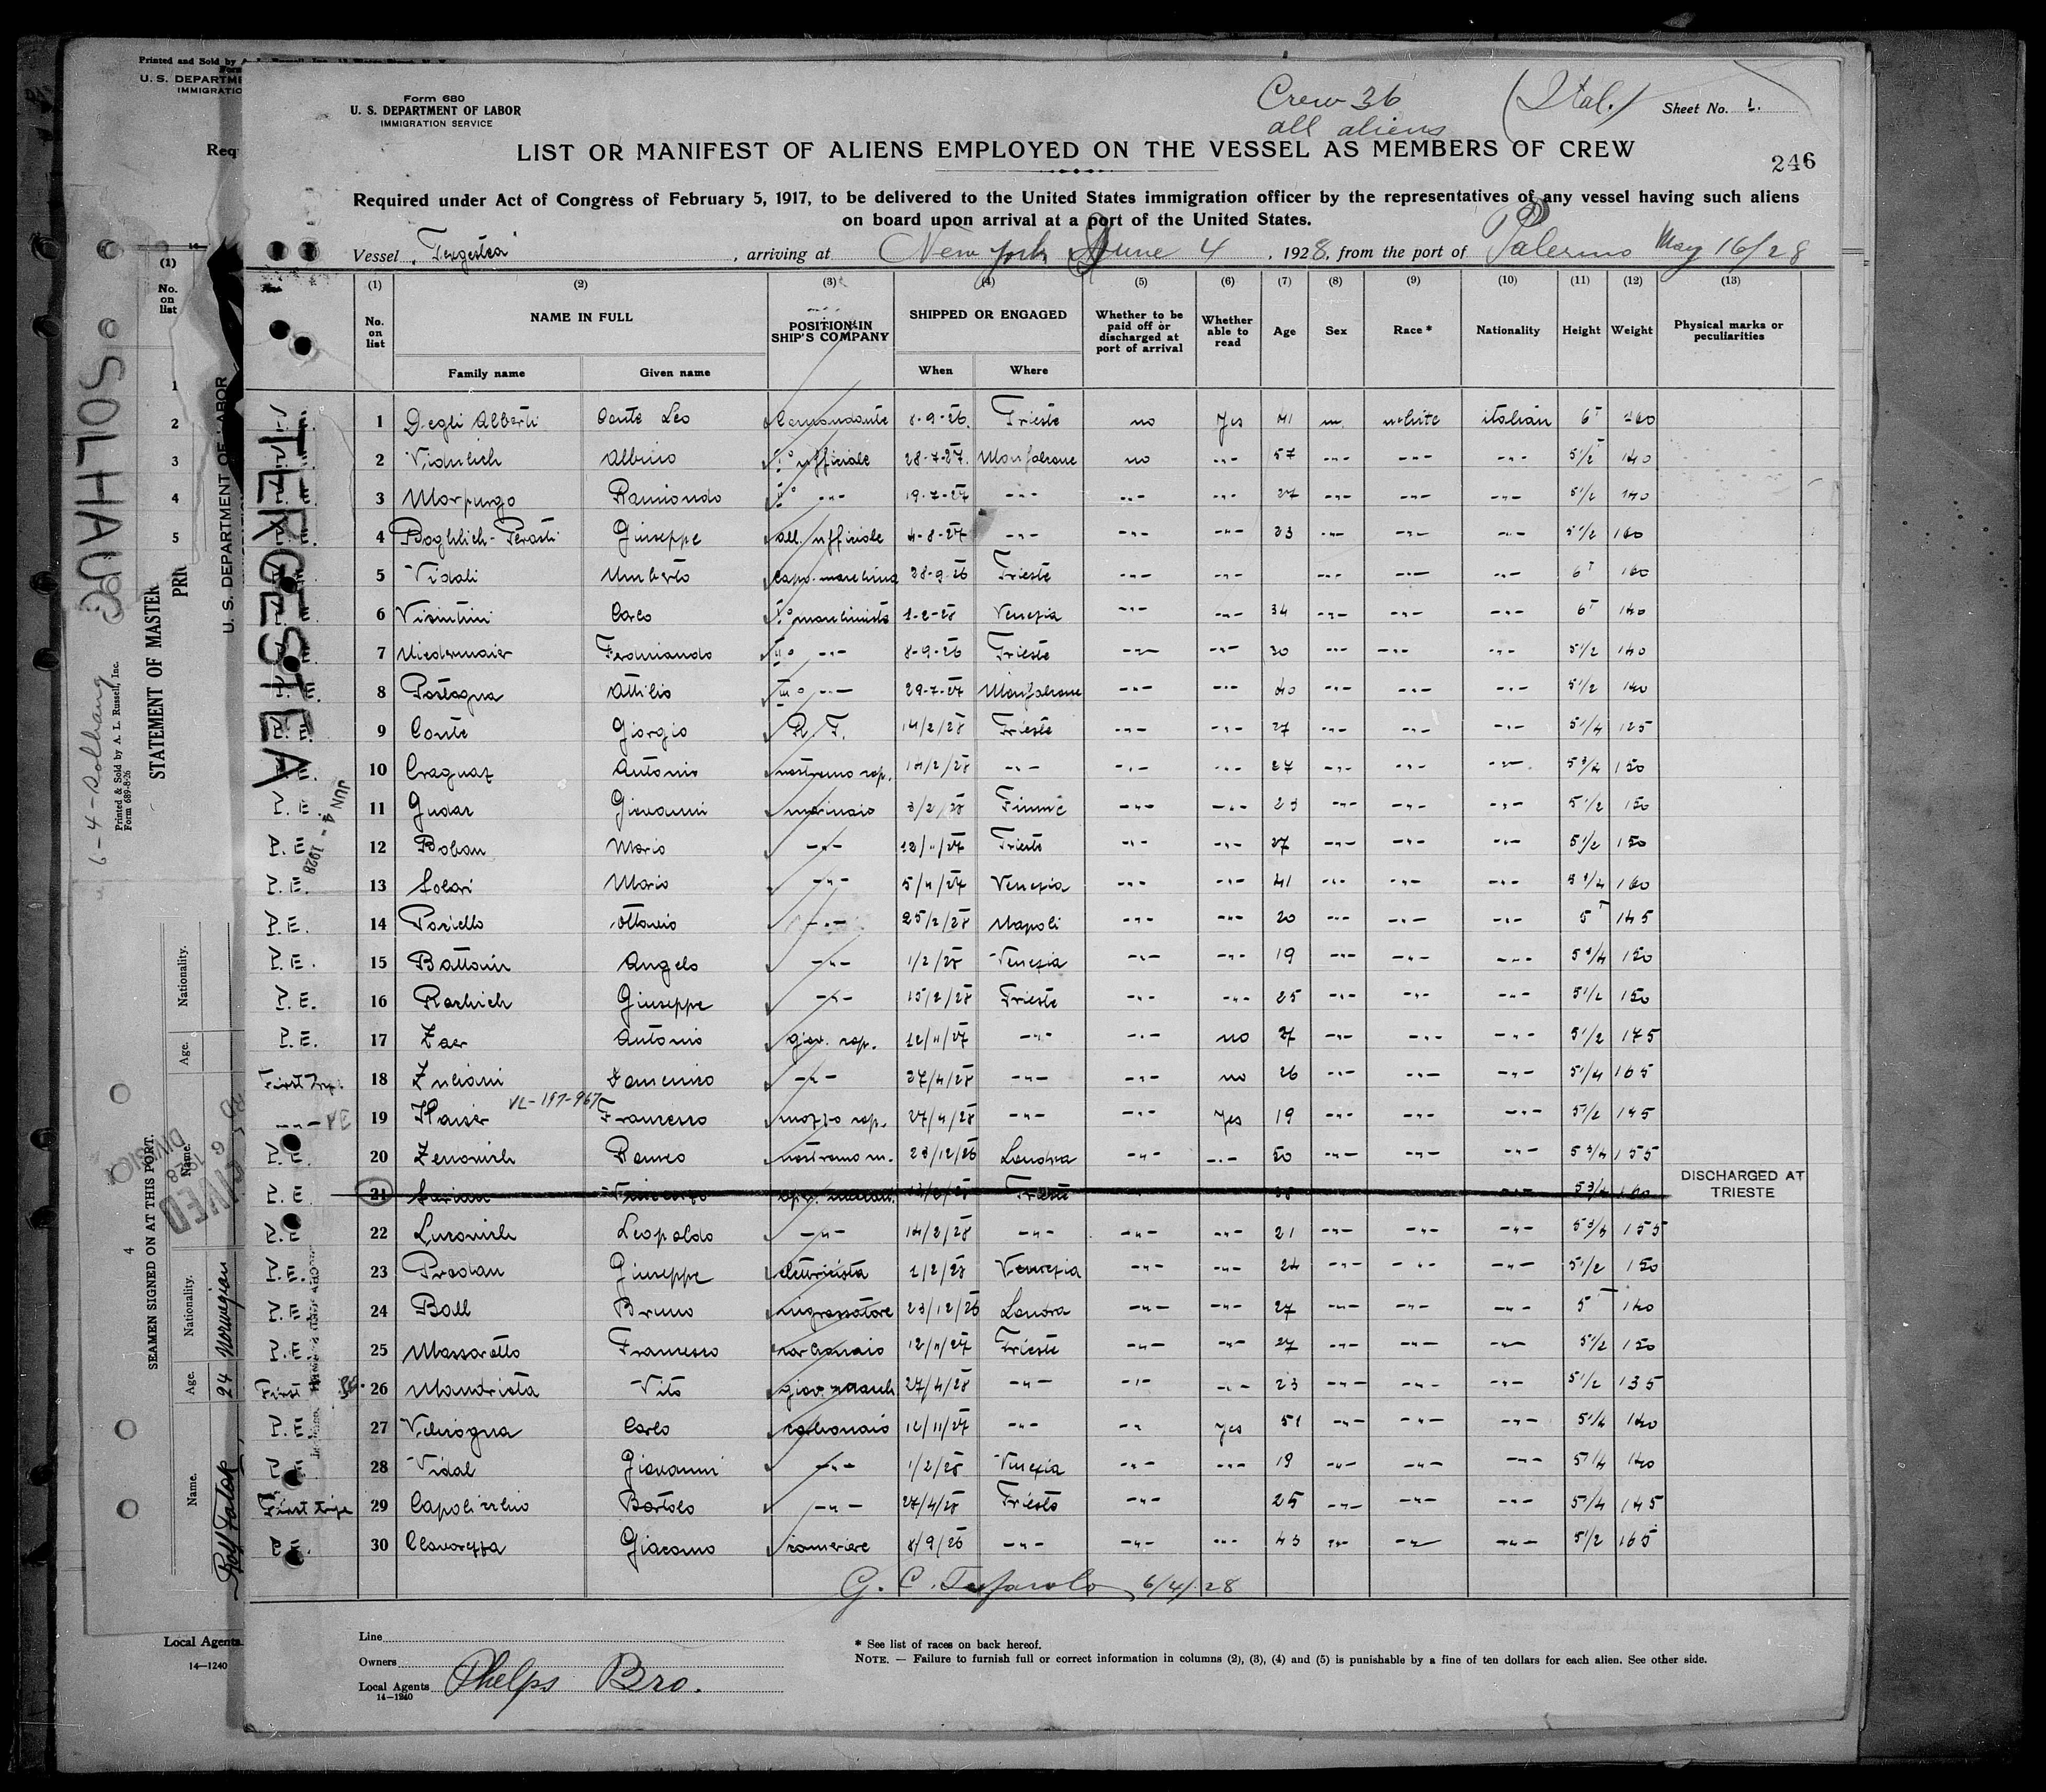 Form 680
U. S. DEPARTMENT OF LABOR
IMMIGRATION SERVICE
Crew 36
all aliens
(Ital.)
Sheet No. 1.
LIST OR MANIFEST OF ALIENS EMPLOYED ON THE VESSEL AS MEMBERS OF CREW
246
Required under Act of Congress of February 5, 1917, to be delivered to the United States immigration officer by the representatives of any vessel having such aliens
on board upon arrival at a port of the United States.
Vessel "Tergestea", arriving at New York June 4, 1928, from the port of Palermo May 16/28
(1) (2) (3) (4) (5) (6) (7) (8) (9) (10) (11) (12) (13)
No. on list NAME IN FULL POSITION IN SHIP'S COMPANY SHIPPED OR ENGAGED Whether to be paid off or discharged at port of arrival Whether able to read Age Sex Race * Nationality Height Weight Physical marks or peculiarities
Family name Given name When Where
1 Degli Alberti Conte Leo Comandante 8-9-26. Trieste no yes 41 m. white italian
2 Vidulich Albino I° ufficiale 28-7-27. Monfalcone no -"- 57 -"- -"- -"- 5 1/2 140
3 Morpurgo Raimondo II° -"- 19-7-27 -"- -"- -"- 27 -"- -"- -"- 5 1/2 140
4 Giuseppe all. ufficiale 4-8-27 -"- -"- -"- 23 -"- -"- -"- 5 1/2 160
5 Vidali Umberto capo macchina 28-9-26 Trieste -"- -"- -"- -"- -"- 6 160
6 Visintini Carlo I° macchinista 1-2-28 Venezia -"- -"- 34 -"- -"- -"- 6 140
7 Niedermaier Ferdinando II° -"- 8-9-26 Trieste -"- -"- 30 -"- -"- -"- 5 1/2 140
8 Postogna Attilio III° -"- 29-7-27 Monfalcone -"- -"- 40 -"- -"- -"- 5 1/2 140
9 Conte Giorgio R. T. 14/2/28 Trieste -"- -"- 27 -"- -"- -"- 5 1/4 125
10 Cragnaz Antonio nostromo cop. 14/2/28 -"- -"- -"- 27 -"- -"- -"- 5 3/4 150
P.E. 11 Gudac Giovanni marinaio 3/2/28 Fiume -"- -"- 23 -"- -"- -"- 5 1/2 150
P.E. 12 Boban Mario -"- 12/11/27 Trieste -"- -"- 27 -"- -"- -"- 5 1/2 150
P.E. 13 Solari Mario -"- 5/11/27 Venezia -"- -"- 41 -"- -"- -"- 5 3/4 160
P.E. 14 Ottavio -"- 25/2/28 Napoli -"- -"- 20 -"- -"- -"- 5 145
P.E. 15 Battonin Angelo -"- 1/2/28 Venezia -"- -"- 19 -"- -"- -"- 5 3/4 150
P.E. 16 Giuseppe -"- 15/2/28 Trieste -"- -"- 25 -"- -"- -"- 5 1/2 150
P.E. 17 Zaer Antonio giov. cop. 12/11/27 -"- -"- no 27 -"- -"- -"- 5 1/2 175
First Trip 18 Zuliani Domenico -"- 27/4/28 -"- -"- no 26 -"- -"- -"- 5 1/4 165
VL-197-967
-"- PE 19 Francesco mozzo cop. 27/4/28 -"- -"- yes 19 -"- -"- -"- 5 1/2 145
P.E. 20 Zenovich Romeo nostromo m. 23/12/26 Londra -"- -"- 50 -"- -"- -"- 5 3/4 155
P.E 21 Trieste 5 3/4 160 DISCHARGED AT TRIESTE
P.E 22 Lucovich Leopoldo -"- 14/2/28 -"- -"- -"- 21 -"- -"- -"- 5 3/4 155
P.E. 23 Predan Giuseppe elettricista 1/2/28 Venezia -"- -"- 24 -"- -"- -"- 5 1/2 150
P.E 24 Ball Bruno ingrassatore 23/12/26 Londra -"- -"- 27 -"- -"- -"- 5 140
P.E. 25 Massarotto Francesco carbonaio 12/11/27 Trieste -"- -"- 27 -"- -"- -"- 5 1/2 150
First 26 Mandriota Vito giov. macch 27/4/28 -"- -"- -"- 23 -"- -"- -"- 5 1/2 135
P.E. 27 Carlo carbonaio 12/11/27 -"- " yes 51 -"- -"- -"- 5 1/4 140
P.E 28 Vidal Giovanni -"- 1/2/28 Venezia -"- -"- 19 -"- -"- -"- 5 1/4 140
First trip 29 Capolicchio Bortolo -"- 27/4/28 Trieste -"- 25 -"- -"- -"- 5 1/4 145
P.E. 30 Giacomo cameriere 8/9/26 -"- -"- -"- 43 -"- -"- -"- 5 1/2 165
6/4/28
Line
Owners
Local Agents Phelps Bro.
14—1240
* See list of races on back hereof.
NOTE. — Failure to furnish full or correct information in columns (2), (3), (4) and (5) is punishable by a fine of ten dollars for each alien. See other side.
TERGESTEA
JUN 4 - 1928
SOLHAUG
6-4-Solhaug
Printed & Sold by A. L. Russell, Inc.
Form 689-8-26
STATEMENT OF MASTER
U. S. DEPARTMENT OF LABOR
SEAMEN SIGNED ON AT THIS PORT.
Name. Age. Nationality.
24 Norwegian
Local Agents
14—1240